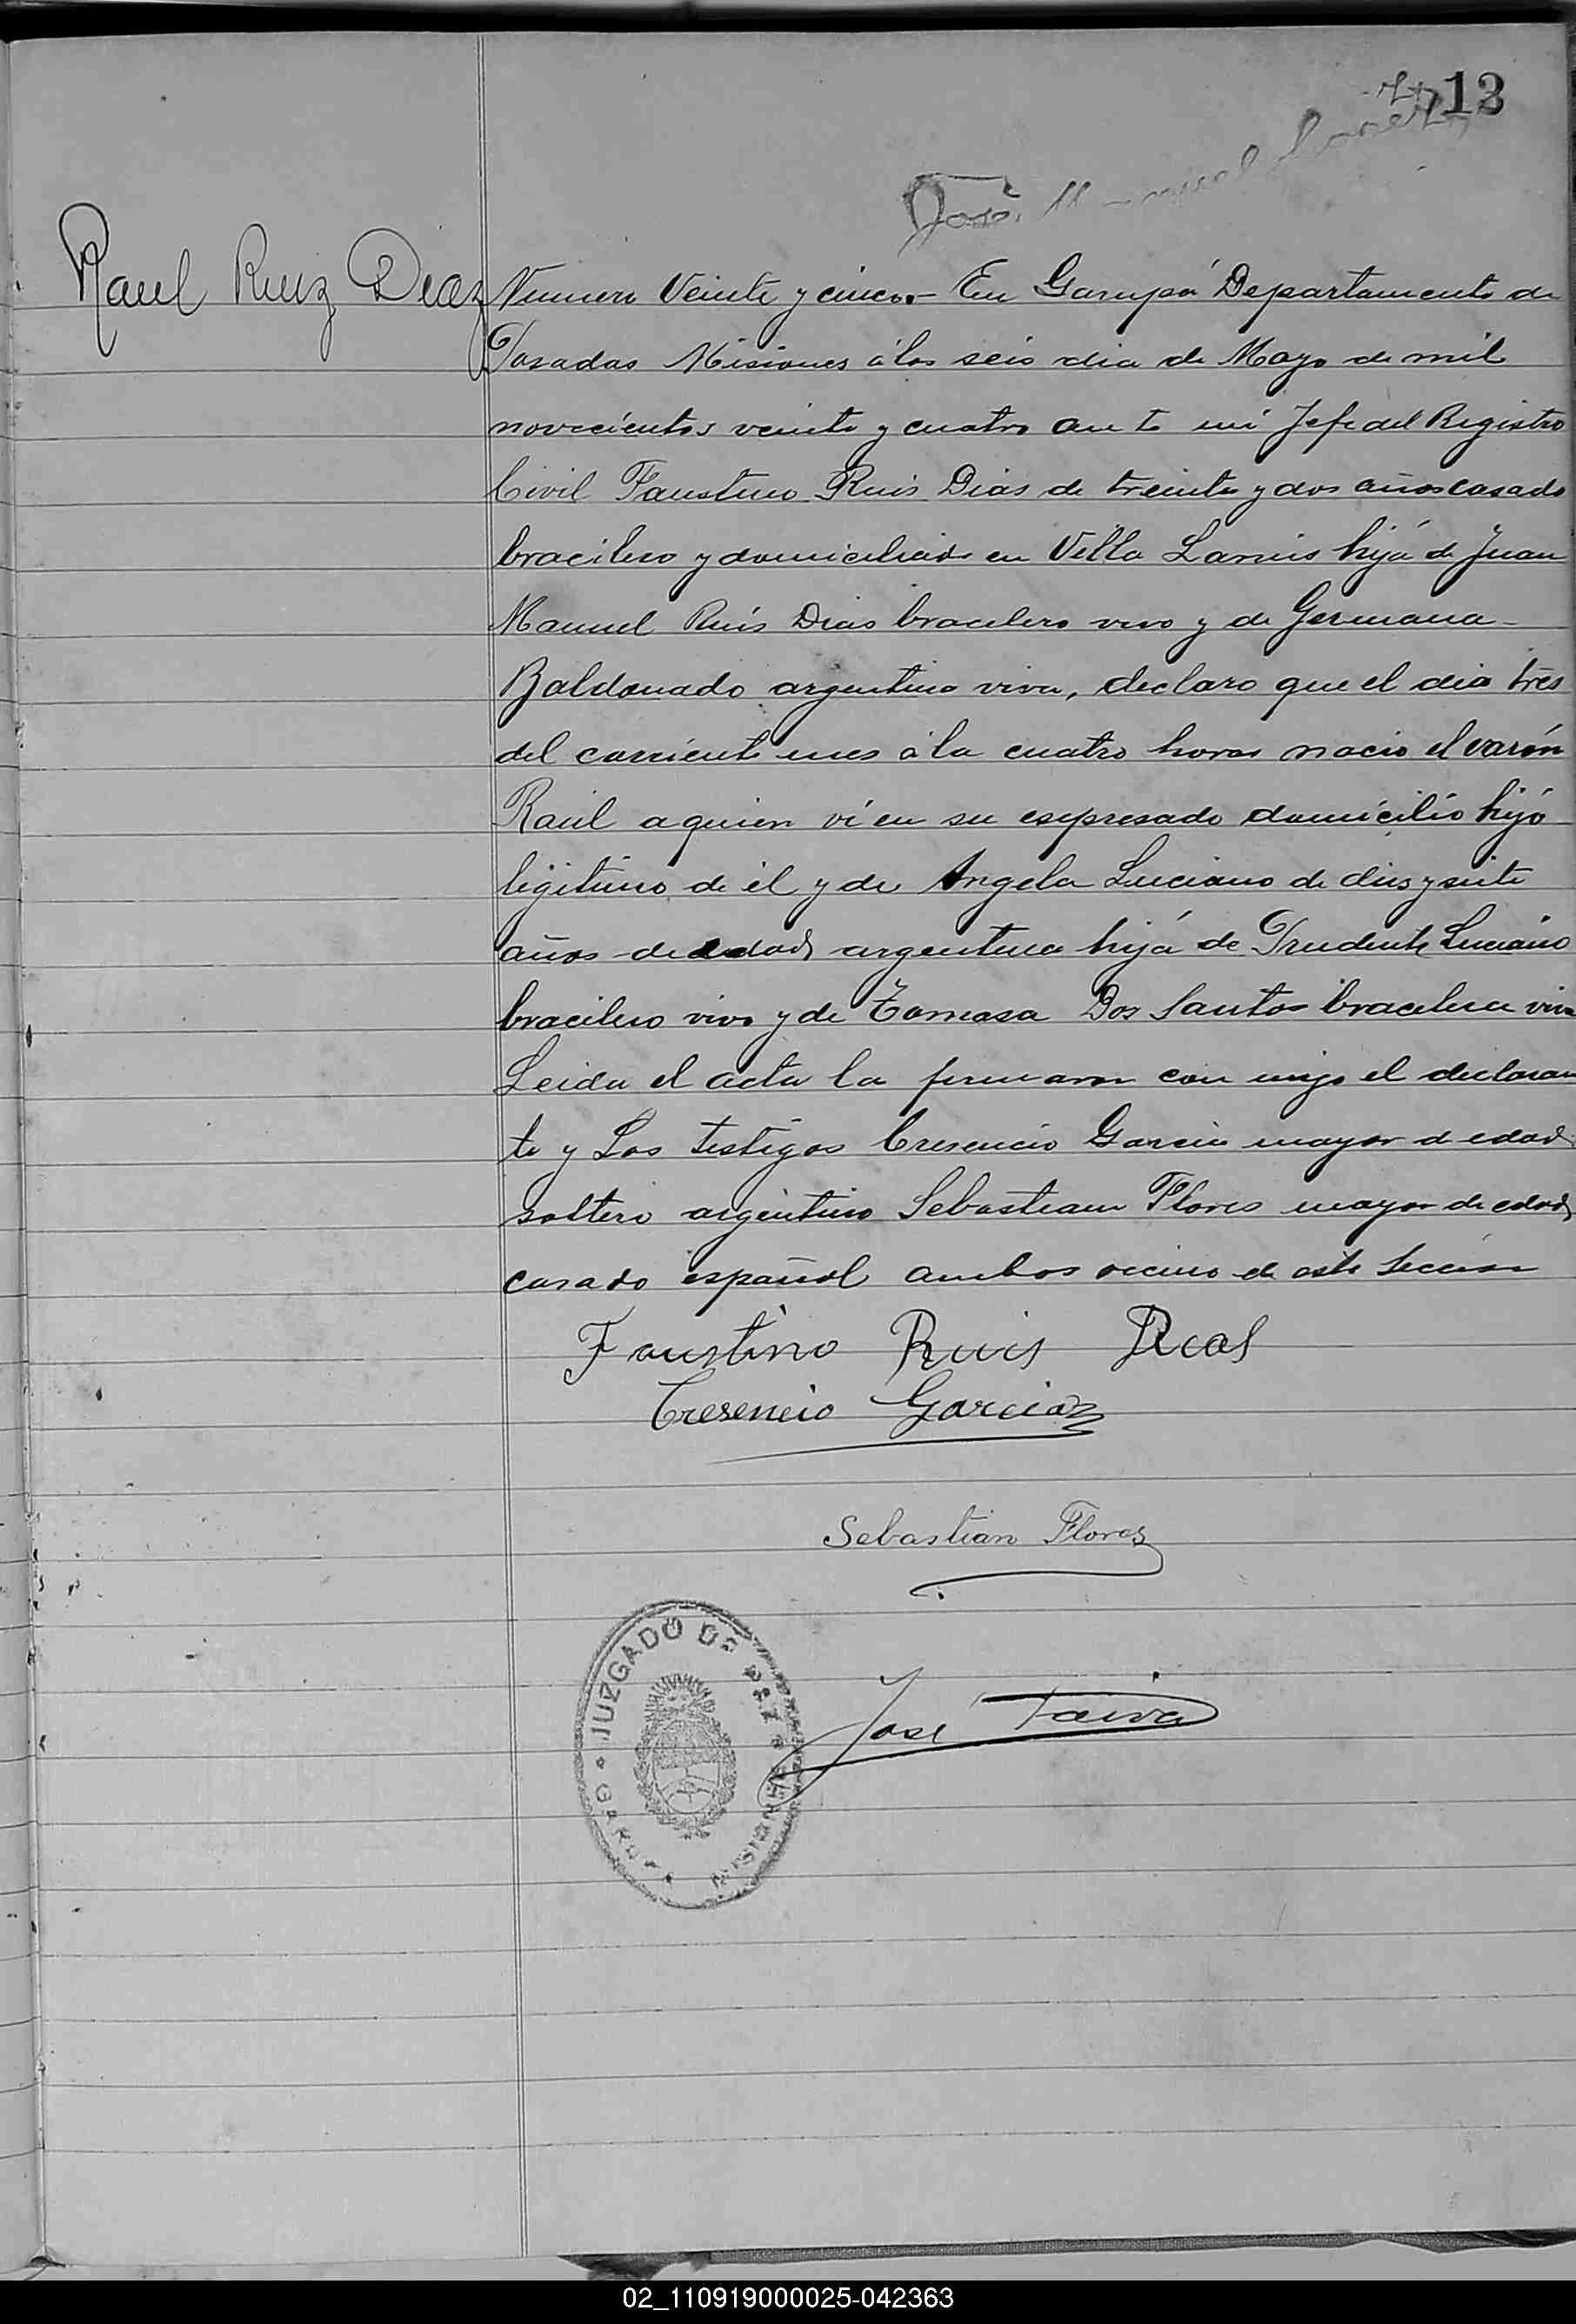 13
José
Raul Ruiz Diaz
Numero Veinte y cinco.- En Garupá Departamento de
Posadas Misiones á los seis dia de Mayo de mil
novecientos veinte y cuatro an te mi Jefe del Registro
Civil Faustino Ruis Dias de treinta y dos años casado
bracilero y domiciliado en Villa Lanus hijo de Juan
Manuel Ruis Dias bracilero vivo y de Germana
Baldonado argentina viva, declaro que el dia tres
del corriente mes á la cuatro horas nacio el varón
Raúl a quien ví en su espresado domicilio hijo
legitimo de él y de Angela Luciano de dies y siete
años de edad argentina hija de Prudente Luciano
bracilero vivo y de Tomasa Dos Santos bracilera viva
Leida el acta la firmaron con migo el declaran
te y Los testigos Cresencio Garcia mayor de edad
soltero argentino Sebastian Flores mayor de edad
casado español ambos vecino de este Seccion
Faustino Ruis Dias
Cresencio Garcia
Sebastian Flores
José Paiva
JUZGADO DE PAZ
GARUPA
MISIONES
02_110919000025-042363